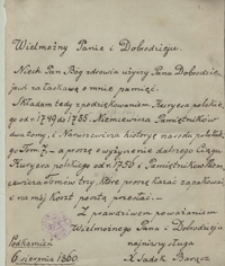 Wielmożny Panie i Dobrodzieju.
Niech Pan Bóg zdrowia użyczy Pana Dobrodzie
jowi za łaskawą o mnie pamięć.
Składam tedy z podziękowaniem Kuryera polskie
go od r. 1749 do 1755. Niemcewicza Pamiętników
dwa tomy, i Naruszewicza historye narodu polski
go Tom. 7 - a proszę o wysłanie dalszego Ciągu
Kuryera polskiego od r. 1756 i Pamiętników Niem
cewicza Tomów trzy, które proszę kazać zapakować
i na mój koszt pocztą przesłać. -
Z prawdziwem poważaniem
Wielmożnego Pana i Dobrodzieja
Podkamień
najniższy sługa
6 sierpnia 1860.
X. Sadok Barącz